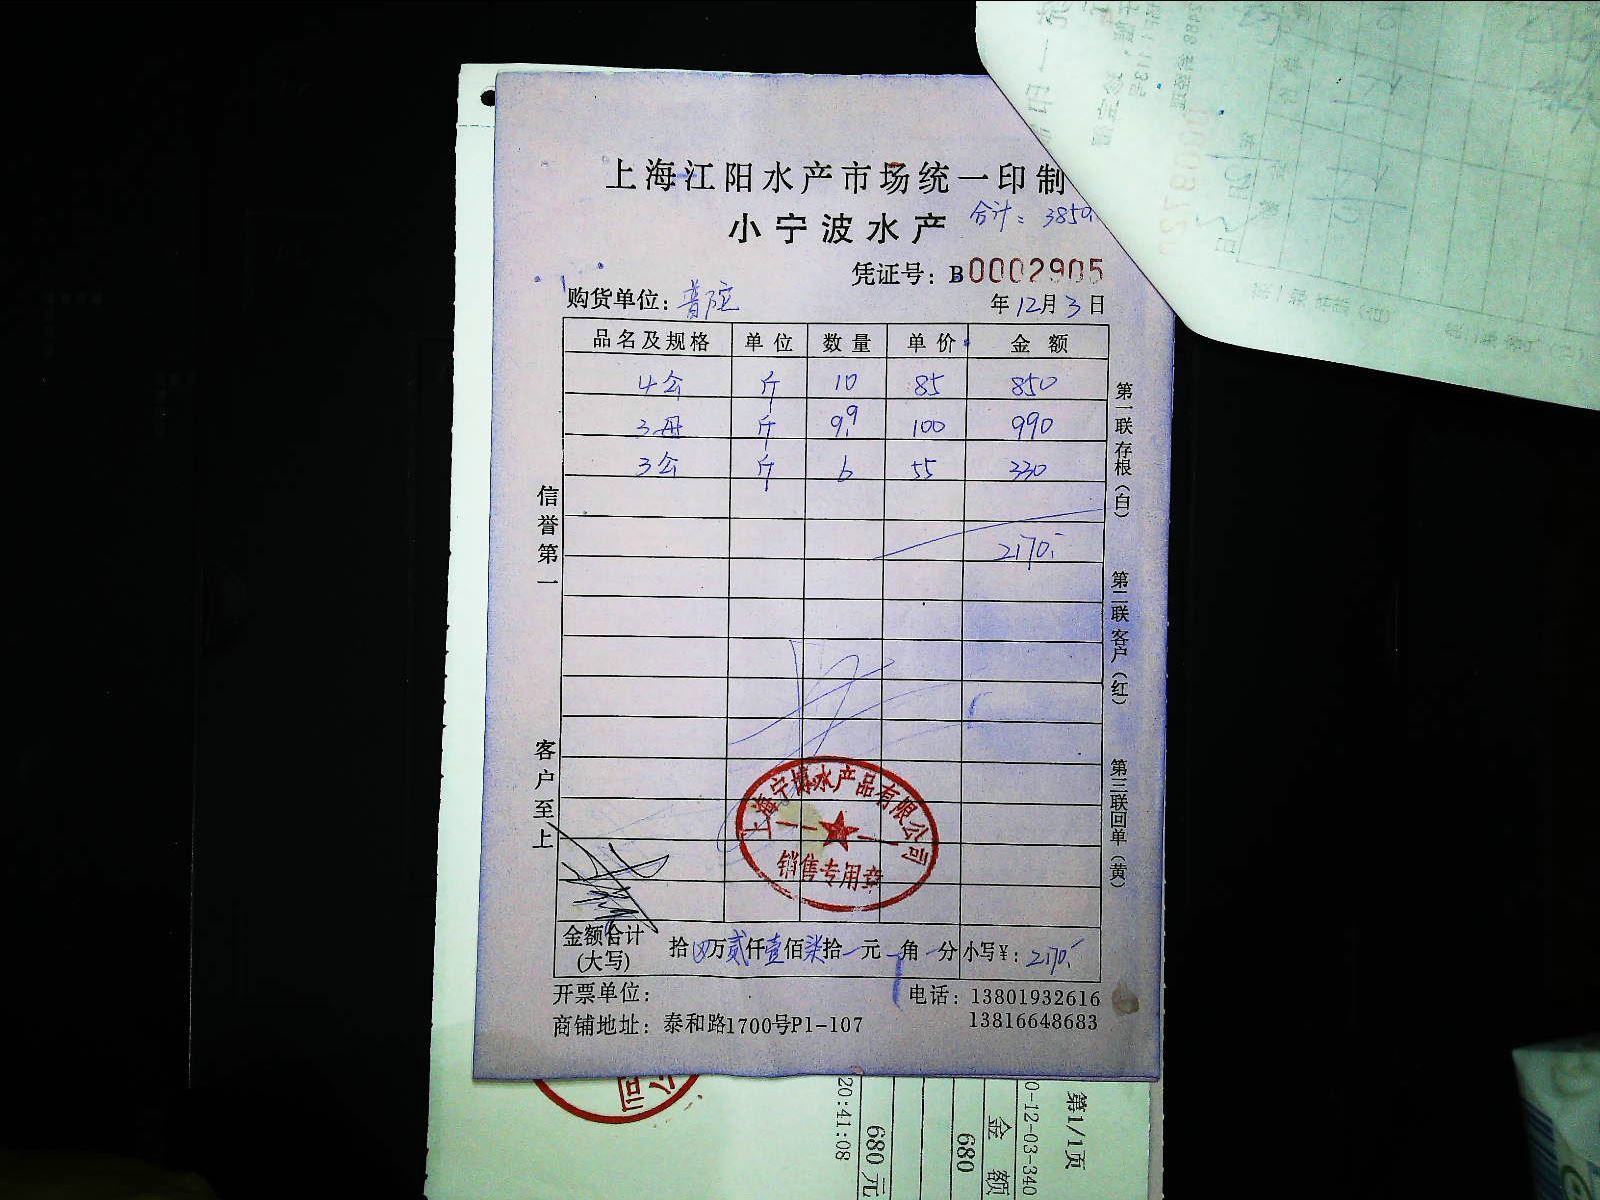 上海江阳水产市场统一印制
小宁波水产
合计：3850.
凭证号：B0002905
购货单位：普陀
年12月3日
品名及规格 单位 数量 单价 金额
4公 斤 10 85 850
3母 斤 9.9 100 990
3公 斤 6 55 330
2170.
信誉第一
客户至上
第一联存根（白）
第二联客户（红）
第三联回单（黄）
上海宁博水产品有限公司
销售专用章
金额合计
(大写)
拾 万贰仟壹佰柒拾 元 角 分 小写￥：2170.
开票单位：
电话：13801932616
商铺地址：泰和路1700号P1-107
13816648683
第1/1页
0-12-03-340
金额
680
680元
20:41:08